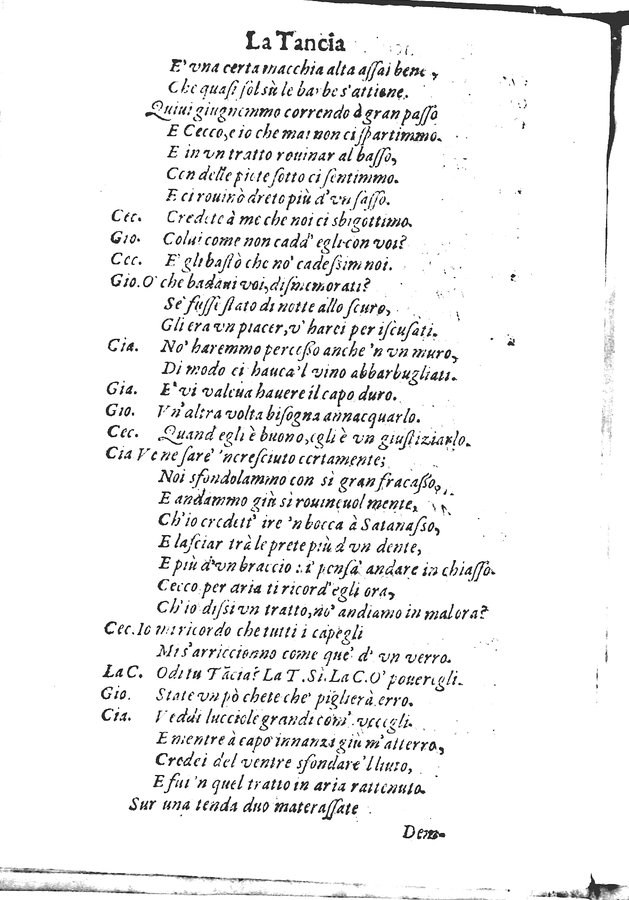 La Tancia
E' vna certa macchia alta assai bene,
Che quasi sol sù le barbe s'attiene.
Quiui giugnemmo correndo à gran passo
E Cecco, e io che mai non ci spartimmo.
E in vn tratto rouinar al basso,
Con delle piete sotto ci sentimmo.
E ci rouinò dreto più d'vn sasso.
Cec. Credete à me che noi ci sbigottimo.
Gio. Colui come non cadd' egli con voi?
Cec. E' gli bastò che no' cadessim noi.
Gio. O' che badaui voi, dismemorati?
Se fusse stato di notte allo scuro,
Gli era vn piacer, v' harei per iscusati.
Cia. No' haremmo percosso anche 'n vn muro,
Di modo ci hauea 'l vino abbarbugliati.
Gia. E' vi valeua hauere il capo duro.
Gio. Vn'altra volta bisogna annacquarlo.
Cec. Quand' egli è buono, egli è vn giustiziarlo.
Cia Ve ne sare' 'ncresciuto certamente;
Noi sfondolammo con sì gran fracasso,
E andammo giù sì rouineuol mente,
Ch'io credett' ire 'n bocca à Satanasso,
E lasciar trà le prete più d vn dente,
E più d'vn braccio pensa' andare in chiasso.
Cecco per aria ti ricord'egli ora,
Ch'io dissi vn tratto, no' andiamo in malora?
Cec. Io mi ricordo che tutti i capegli
Mi s'arricciorno come que' d' vn verro.
La C. Odi tu Tācia? La T. Sì. La C. O' poueregli.
Gio. State vn pò chete che' piglierà erro.
Cia. Veddi lucciole grandi com' vccegli.
E mentre à capo innanzi giù m'atterro,
Credei del ventre sfondare 'l liuto,
E fui 'n quel tratto in aria rattenuto.
Sur una tenda duo materassate
Dem-